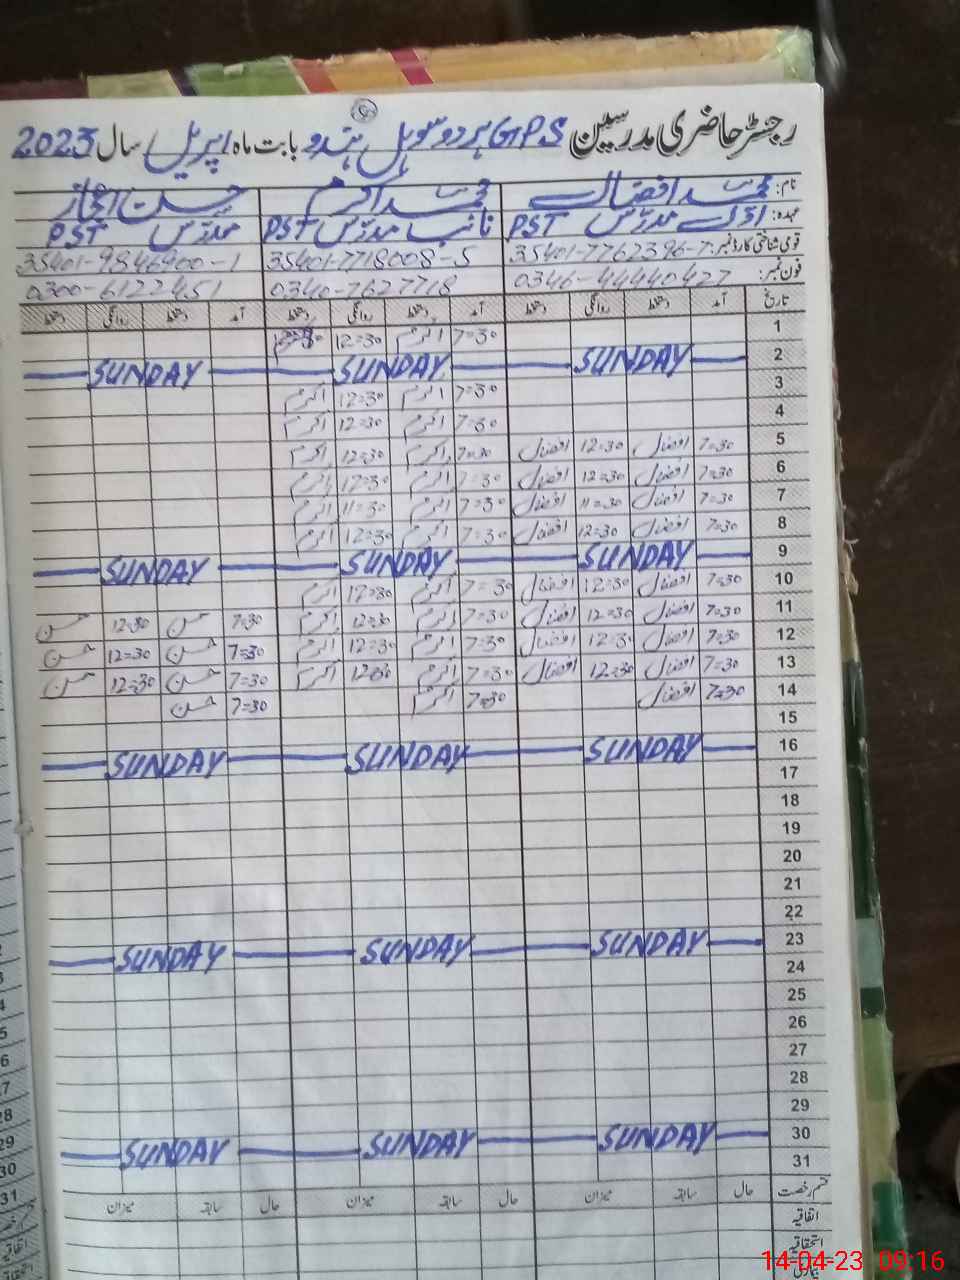 رجسٹر حاضری مدرسین GPS ہردوسوہل ہندو بابت ماہ اپریل سال 2023
نام: محمد افضال محمد اکرم حسن اعجاز
عہدہ: اول مدرس PST نائب مدرس PST مدرس PST
قومی شناختی کارڈ نمبر: 35401-7762396-7 35401-7718008-5 35401-9846900-1
فون نمبر: 0346-44440427 0340-7627718 0300-6122451
تاریخ آمد دستخط روانگی دستخط آمد دستخط روانگی دستخط آمد دستخط روانگی دستخط
1 7=30 اکرم 12=30
2 SUNDAY SUNDAY SUNDAY
3 7=30 اکرم 12=30 اکرم
4 7=30 اکرم 12=30 اکرم
5 7=30 افضال 12=30 افضال 7=30 اکرم 12=30 اکرم
6 7=30 افضال 12=30 افضال 7=30 اکرم 12=30 اکرم
7 7=30 افضال 11=30 افضال 7=30 اکرم 11=30 اکرم
8 7=30 افضال 12=30 افضال 7=30 اکرم 12=30 اکرم
9 SUNDAY SUNDAY SUNDAY
10 7=30 افضال 12=30 افضال 7=30 اکرم 12=30 اکرم
11 7=30 افضال 12=30 افضال 7=30 اکرم 12=30 اکرم 7=30 حسن 12=30 حسن
12 7=30 افضال 12=30 افضال 7=30 اکرم 12=30 اکرم 7=30 حسن 12=30 حسن
13 7=30 افضال 12=30 افضال 7=30 اکرم 12=30 اکرم 7=30 حسن 12=30 حسن
14 7=30 افضال 7=30 اکرم 7=30 حسن
15
16 SUNDAY SUNDAY SUNDAY
17
18
19
20
21
22
23 SUNDAY SUNDAY SUNDAY
24
25
26
27
28
29
30 SUNDAY SUNDAY SUNDAY
31
قسم رخصت حال سابقہ میزان حال سابقہ میزان حال سابقہ میزان
اتفاقیہ
استحقاقیہ
بیماری
14-04-23 09:16